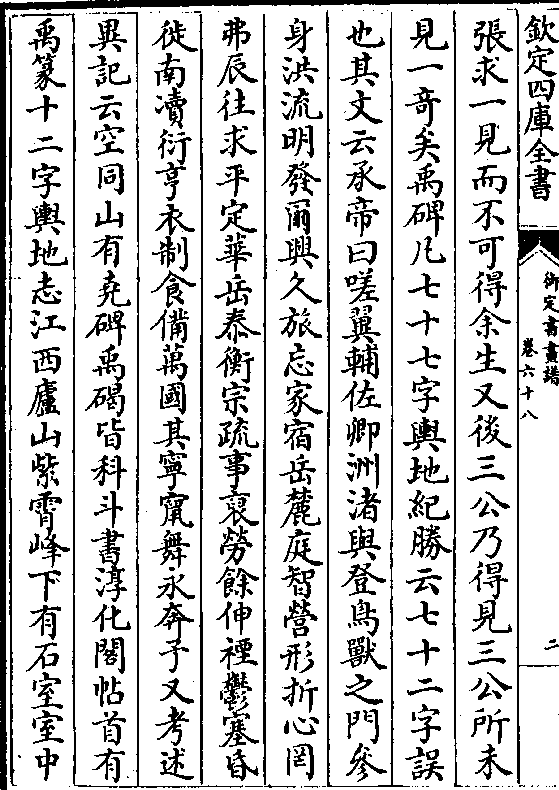 欽定四庫全書
御定書畫譜
卷六十八
二
張求一見而不可得余生又後三公乃得見三公所未
見一奇矣禹碑凡七十七字輿地紀勝云七十二字誤
也其文云承帝曰嗟翼輔佐卿洲渚與登鳥獸之門參
身洪流明發爾興久旅忘家宿岳麓庭智營形折心罔
弗辰往求平定華岳泰衡宗疏事裒勞餘伸禋鬱塞昏
徙南瀆衍亨衣制食備萬國其寧竄舞永奔予又考述
異記云空同山有堯碑禹碣皆科斗書淳化閣帖首有
禹篆十二字輿地志江西廬山紫霄峰下有石室室中